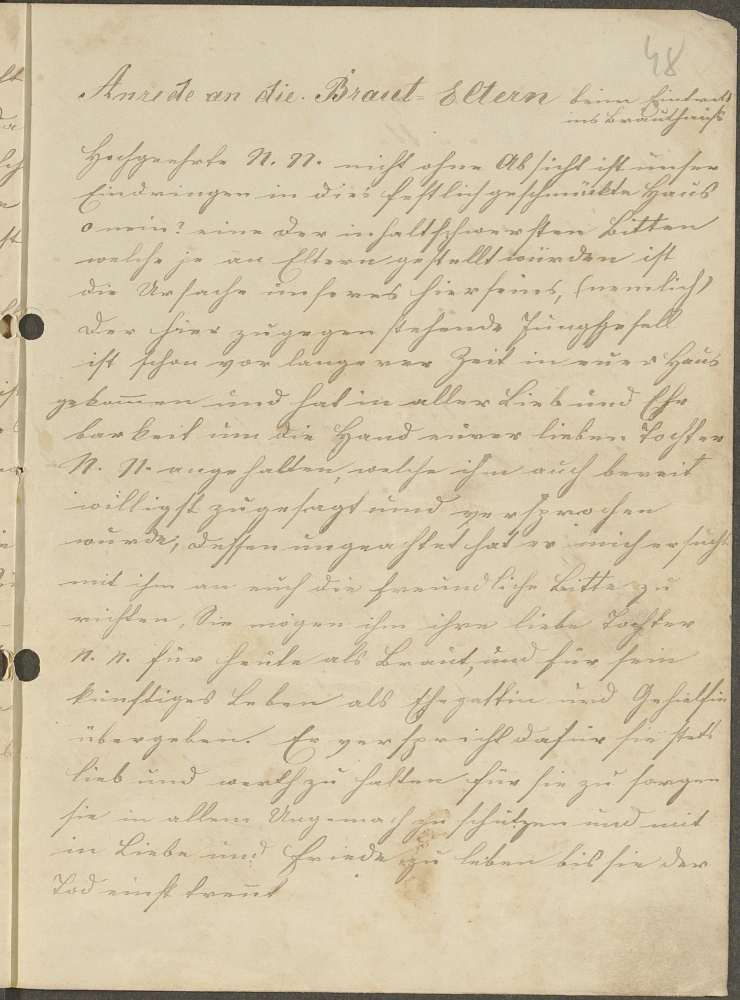 48
Anrede an die Braut-Eltern beim Eintritt
ins Brauthaus
Hochgeehrte N. N. nicht ohne Absicht ist unser
Eindringen in dies festlichgeschmückte Haus
o nein! eine der inhaltschwersten Bitten
welche je an Eltern gestellt würden ist
die Ursache unseres hierseins, (nemlich)
Der hier zugegen stehende Junggesell
ist schon vor langerer Zeit in euer Haus
gekommen und hat in aller Lieb und Ehr
barkeit um die Hand eurer lieben Tochter
N. N. angehalten, welche ihm auch bereit
willigst zugesagt und versprochen
wurde, dessen ungeachtet hat er mich ersucht
mit ihm an euch die freundliche Bitte zu
richten, Sie mögen ihm ihre liebe Tochter
N. N. für heute als Braut, und für sein
künftiges Leben als Ehegattin und Gehilfin
übergeben. Er verspricht dafür sie stets
lieb und werth zu halten für sie zu sorgen
sie in allem Ungemach zu schützen und mit
in Liebe und Friede zu leben bis sie der
Tod einst trennt